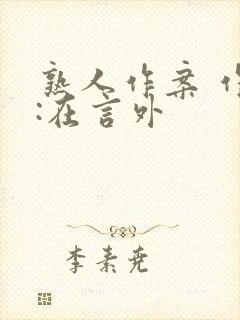 熟人作案 作
:在言外
李素尧